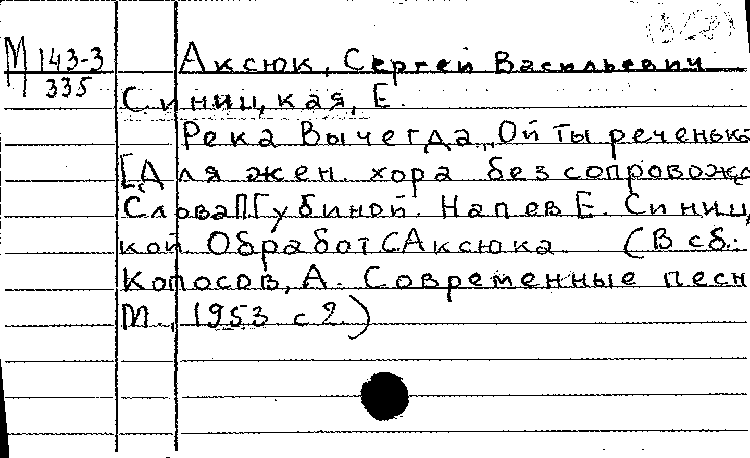 М 143-3
335
Аксюк, Сергей Васильевич
Синицкая, Е.
Река Вычегда „Ой ты реченька
[Для жен. хора без сопровожд
Слова П. Губиной. Напев Е. Синиц
кой. Обработ С Аксюка. (В сб.:
Колосов, А. Современные песн
М., 1953 с 2.)